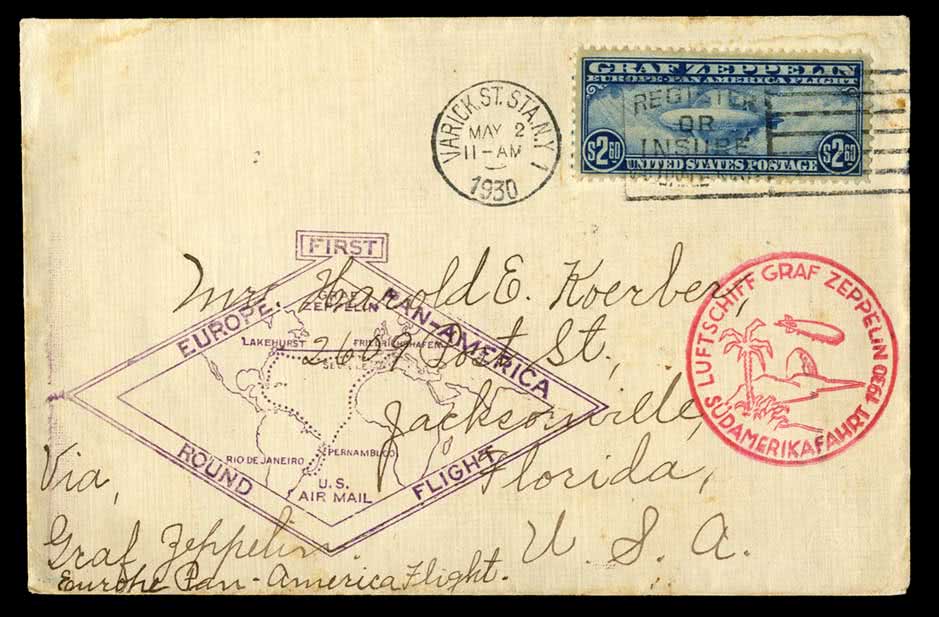 GRAF ZEPPELIN
EUROPE-PAN AMERICA FLIGHT
REGISTER
OR
INSURE
$2.60
UNITED STATES POSTAGE
$2.60
VARICK. ST. STA. N.Y. 1
MAY 2
11-AM
1930
FIRST
EUROPE
PAN-AMERICA
ROUND
FLIGHT
GRAF
ZEPPELIN
LAKEHURST
FRIEDRICHSHAFEN
SEVILLE
RIO DE JANEIRO
PERNAMBUCO
U.S.
AIR MAIL
Mr. Harold E. Koerber,
2609 Post St.,
Jacksonville,
Florida,
U. S. A.
LUFTSCHIFF GRAF ZEPPELIN
SÜDAMERIKAFAHRT 1930
Via,
Graf Zeppelin.
Europe Pan-America Flight.